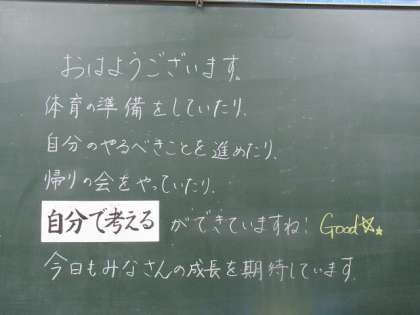 おはようございます。
体育の準備をしていたり、
自分のやるべきことを進めたり、
帰りの会をやっていたり、
自分で考える ができていますね! Good☆★
今日もみなさんの成長を期待しています。